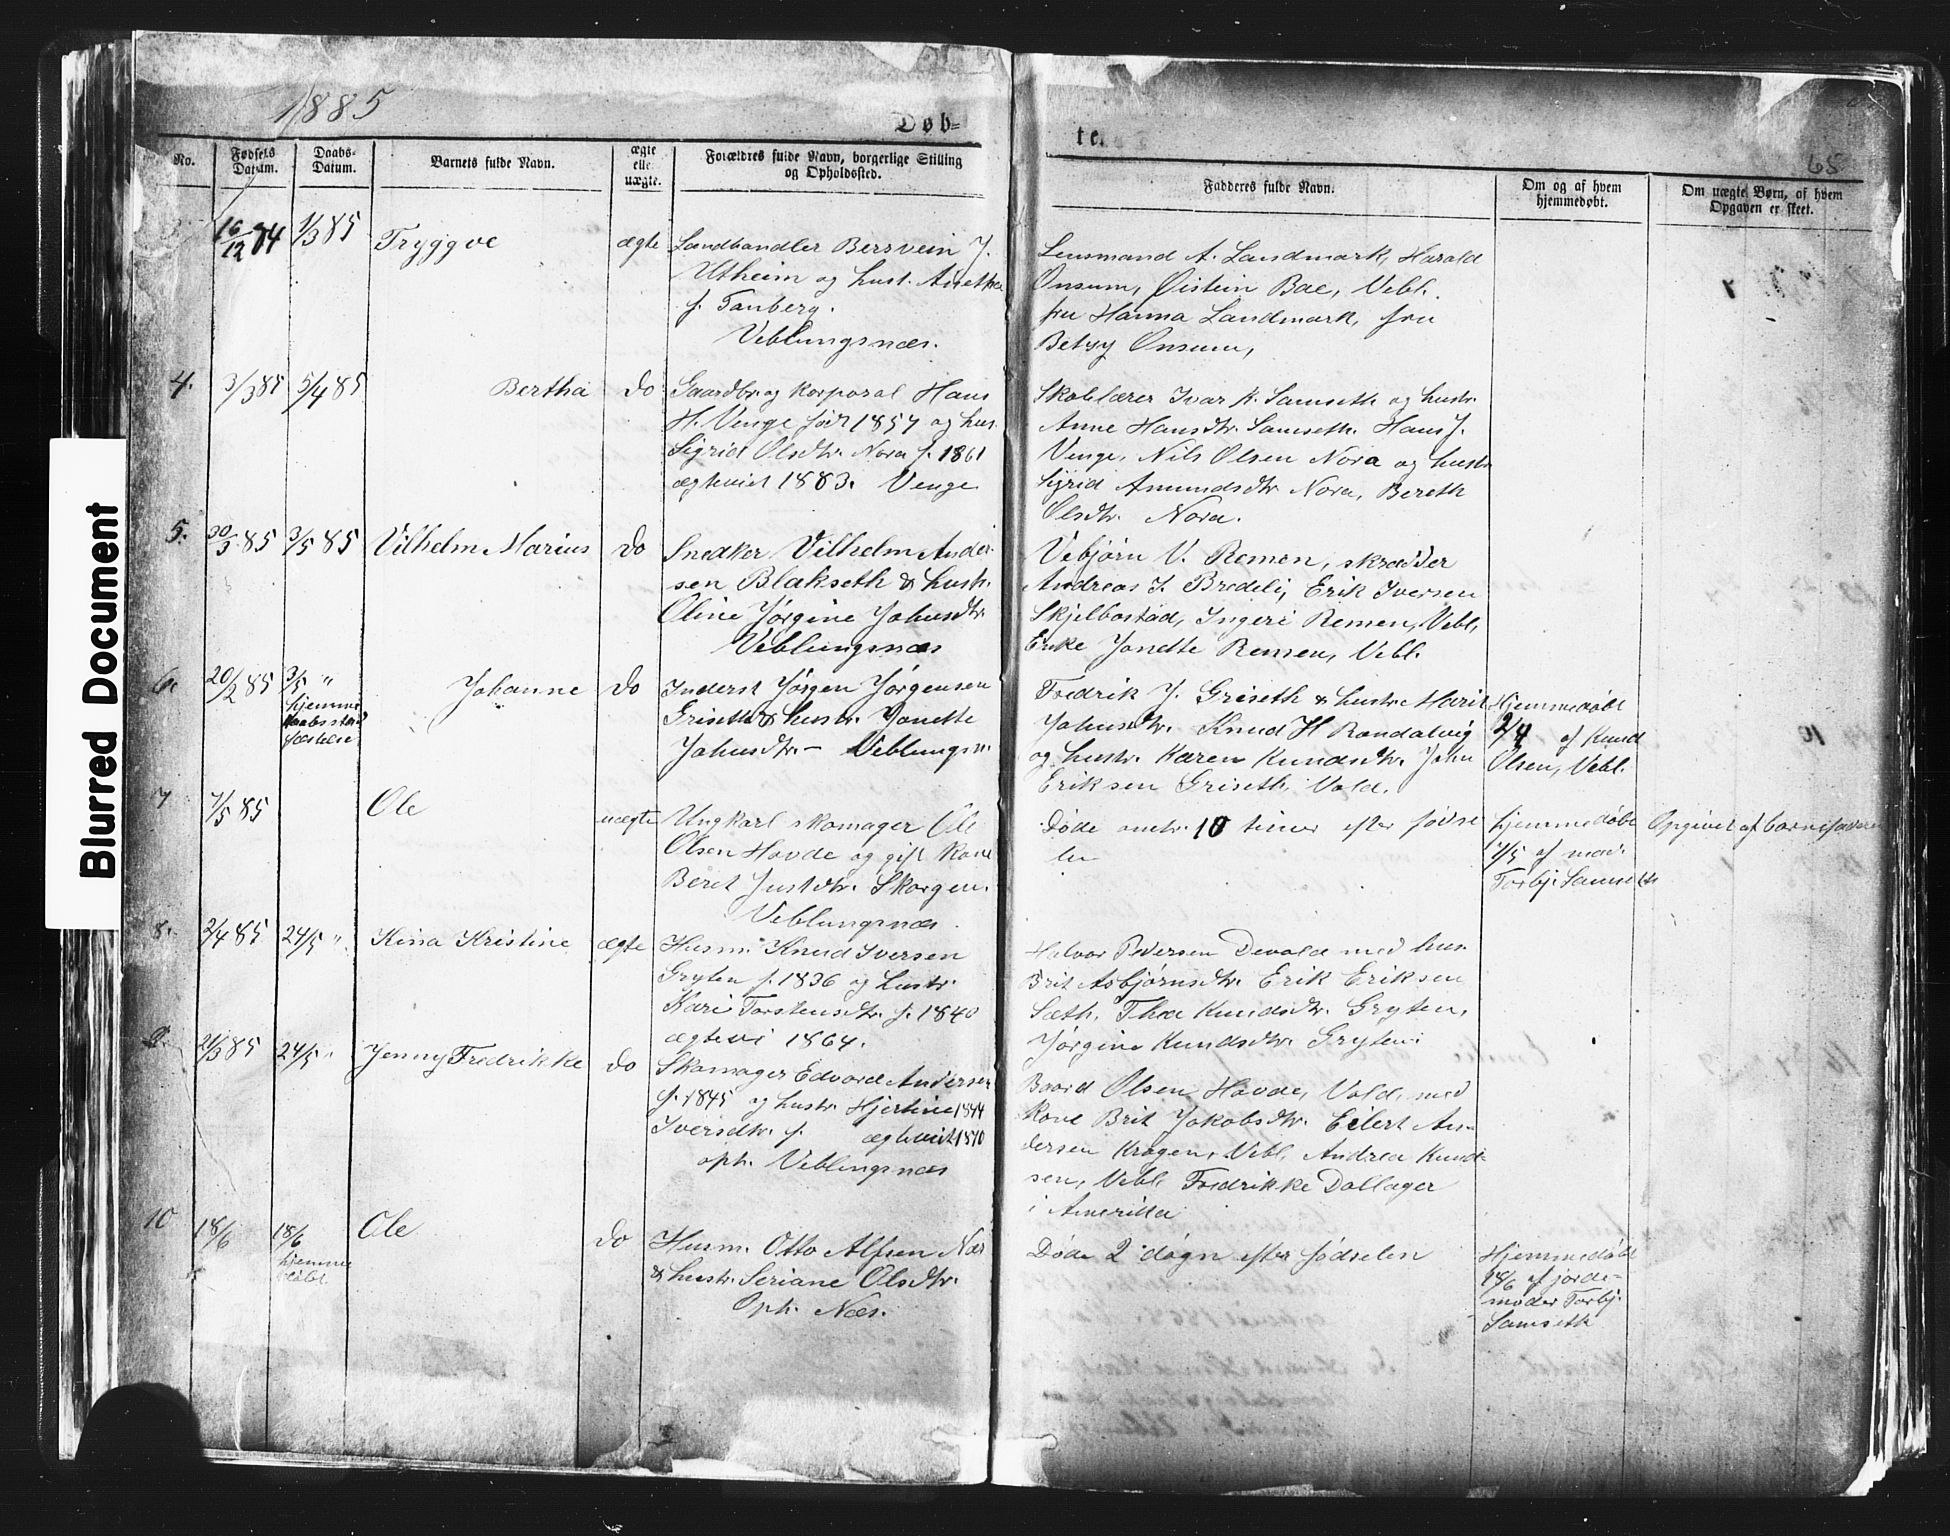 Blurred Document
1885
Døb=
te
65
No.
Fødsels Datum.
Daabs= Datum.
Barnets fulde Navn.
ægte eller uægte.
Forældres fulde Navn, borgerlige Stilling og Opholdssted.
Fadderes fulde Navn.
Om og af hvem hjemmedøbt.
Om uægte Børn, af hvem Opgaven er skeet.
16/12 84 1/3 85 Tryggve ægte Landhandler Bersvein J.
Utheim og hust. Anethe
f. Tanberg.
Veblungsnæs.
Lensmand A. Landmark, Harald
Onsum, Øistein Bae, Vebl.
fru Hanna Landmark, fru
Betzy Onsum,
4. 3/3 85 5/4 85 Bertha do Gaardbr. og Korporal Hans
H. Venge født 1857 og hus.
Sigrid Olsdtr. Nora f. 1861
ægteviet 1883. Venge
Skolelærer Ivar K. Samseth og hustr.
Anne Hansdtr. Samseth. Hans J.
Venge, Nils Olsen Nora og hustr.
Sigrid Amundsdtr Nora, Bereth
Olsdtr. Nora.
5. 30/3 85 3/5 85 Vilhelm Marius do Snedker Vilhelm Ander-
sen Blakseth & hustr.
Oline Jørgine Johnsdtr.
Veblungsnæs
Vebjørn V. Remen, skrædder
Andreas J. Bredeli, Erik Iversen
Skjelbostad, Ingeri Remen, Vebl,
Enke Jonette Remen, Vebl.
6. 20/2 85 3/5 " Johanne do Inderst Jørgen Jørgensen
hjemme
Griseth & hustr. Jonette
Johnsdtr. - Veblungsn.
Fredrik J. Griseth & hustr. Marit
Johnsdtr. Knud H Romdalvig
og hustr. Karen Knudsdtr. John
Eriksen Griseth, Vold.
Hjemmedøbt
2/4 af Knud
Olsen, Vebl.
7 7/5 85 Ole uægte Ungkarl skomager Ole
Olsen Hovde og gift Kone
Beret Justdtr. Skorgen.
Veblungsnæs
Døde omtr. 10 timer efter fødse
len
hjemmedøbt
7/5 af mad.
Torbj. Samseth
Opgivet af barnefaderen
8. 2/4 85 24/5 " Kina Kristine ægte Husm. Knud Iversen
Gryten f. 1836 og hustr.
Kari Torstensdtr. f. 1840
ægtevi 1864.
Halvor Pedersen Devold med hus
Brit Asbjørnsdtr. Erik Eriksen
Sæth, Thea Knudsdtr. Gryten,
Jørgine Knudsdtr. Gryten
9. 21/3 85 24/5 " Jenny Fredrikke do Skomager Edvard Andersen
f. 1845 og hustr. Hjertine 1844
Iversdtr. f. ægteviet 1870
oph. Veblungsnæs
Baard Olsen Hovde, Vold, med
Kone Brit Jakobsdtr. Eilert An-
dersen Krogen, Vebl. Andrea Knud-
sen, Vebl. Fredrikke Dallager
i Amerika
10 18/6 18/6 Ole do Husm. Otto Alfsen Næs
hjemme
døbt
& hustr. Seriane Olsdtr.
Oph. Næs.
Døde 2 døgn efter fødselen
Hjemmedøbt
18/6 af jorde-
moder Torbj.
Samseth